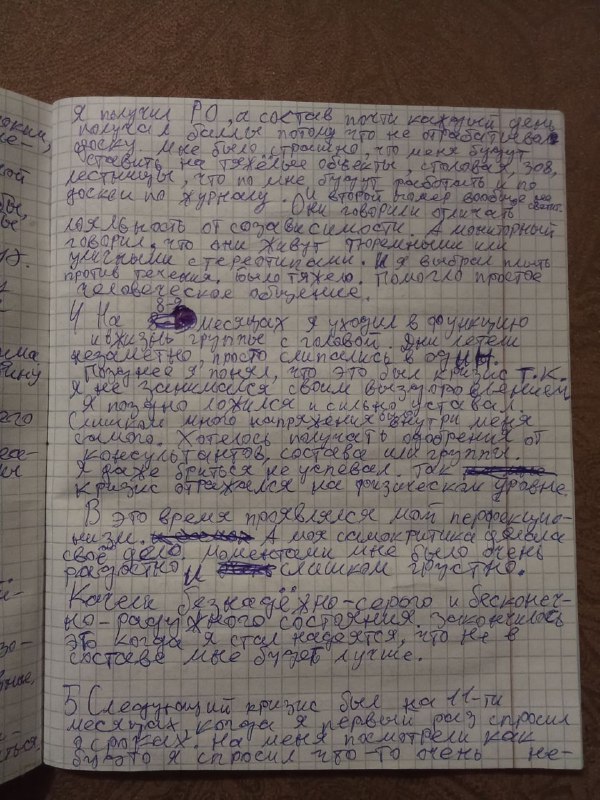 Я получил РО, а состав почти каждый день
получал баллы потому что не отрабатывал
доску. Мне было страшно, что меня будут
ставить на тяжёлые обьекты, столовая, 308,
лестницы, что по мне будут работать и по
доскам по журналу. И второй номер вообще не
свалит.
Они говорили отличать
лояльность от созависимости. А мониторный
говорил, что они живут тюремными или
уличными стереотипами. И я выбрал плыть
против течения. Было тяжело. Помогло простое
человеческое общение.
8-9
4 На месяцах я уходил в функцию
и жизнь группы с головой. Дни летели
незаметно, просто слипались в один.
Позднее я понял, что это был кризис т.к.
я не занимался своим выздоровлением
Я поздно ложился и сильно уставал.
Слишком много напряжения было внутри меня
самого. Хотелось получать одобрения от
консультантов, состава или группы.
Я даже бриться не успевал. Так
кризис отражался на физическом уровне.
В это время проявлялся мой перфекцио-
низм. А моя самокритика делала
своё дело, моментами мне было очень
радостно и слишком грустно.
Качели безнадёжно-серого и бесконеч-
но-радужного состояния. Закончилось
это когда я стал надеятся, что не в
составе мне будет лучше.
5 Следующий кризис был на 11-ти
месяцах, когда я первый раз спросил
о сроках. На меня посмотрели как
будто я спросил что-то очень не-